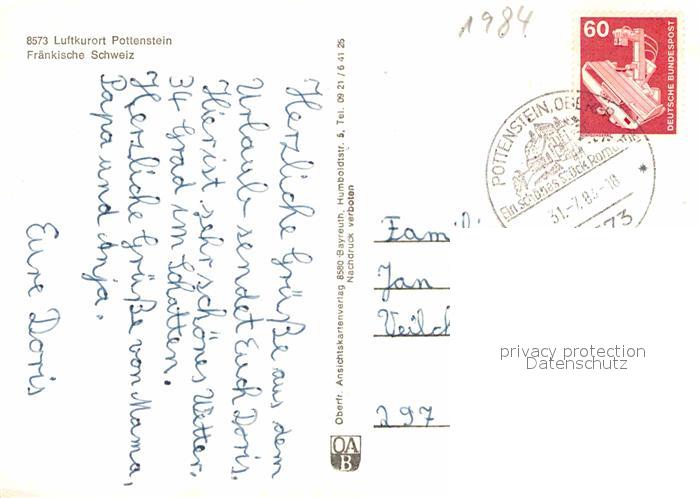 8573 Luftkurort Pottenstein
Fränkische Schweiz
1984
60
DEUTSCHE BUNDESPOST
POTTENSTEIN, OBERFR
Ein schönes Stück Romantik
31.-7.83-18
8573
Herzliche Grüße aus dem
Urlaub sendet Euch Doris.
Hier ist sehr schönes Wetter.
34 Grad im Schatten.
Herzliche Grüße von Mama,
Papa und Anja.
Eure Doris
Oberfr. Ansichtskartenverlag 8580 Bayreuth, Humboldtstr. 5, Tel. 09 21 / 6 41 25
Nachdruck verboten
OA
B
Fam
Jan
Veilch
297
privacy protection
Datenschutz